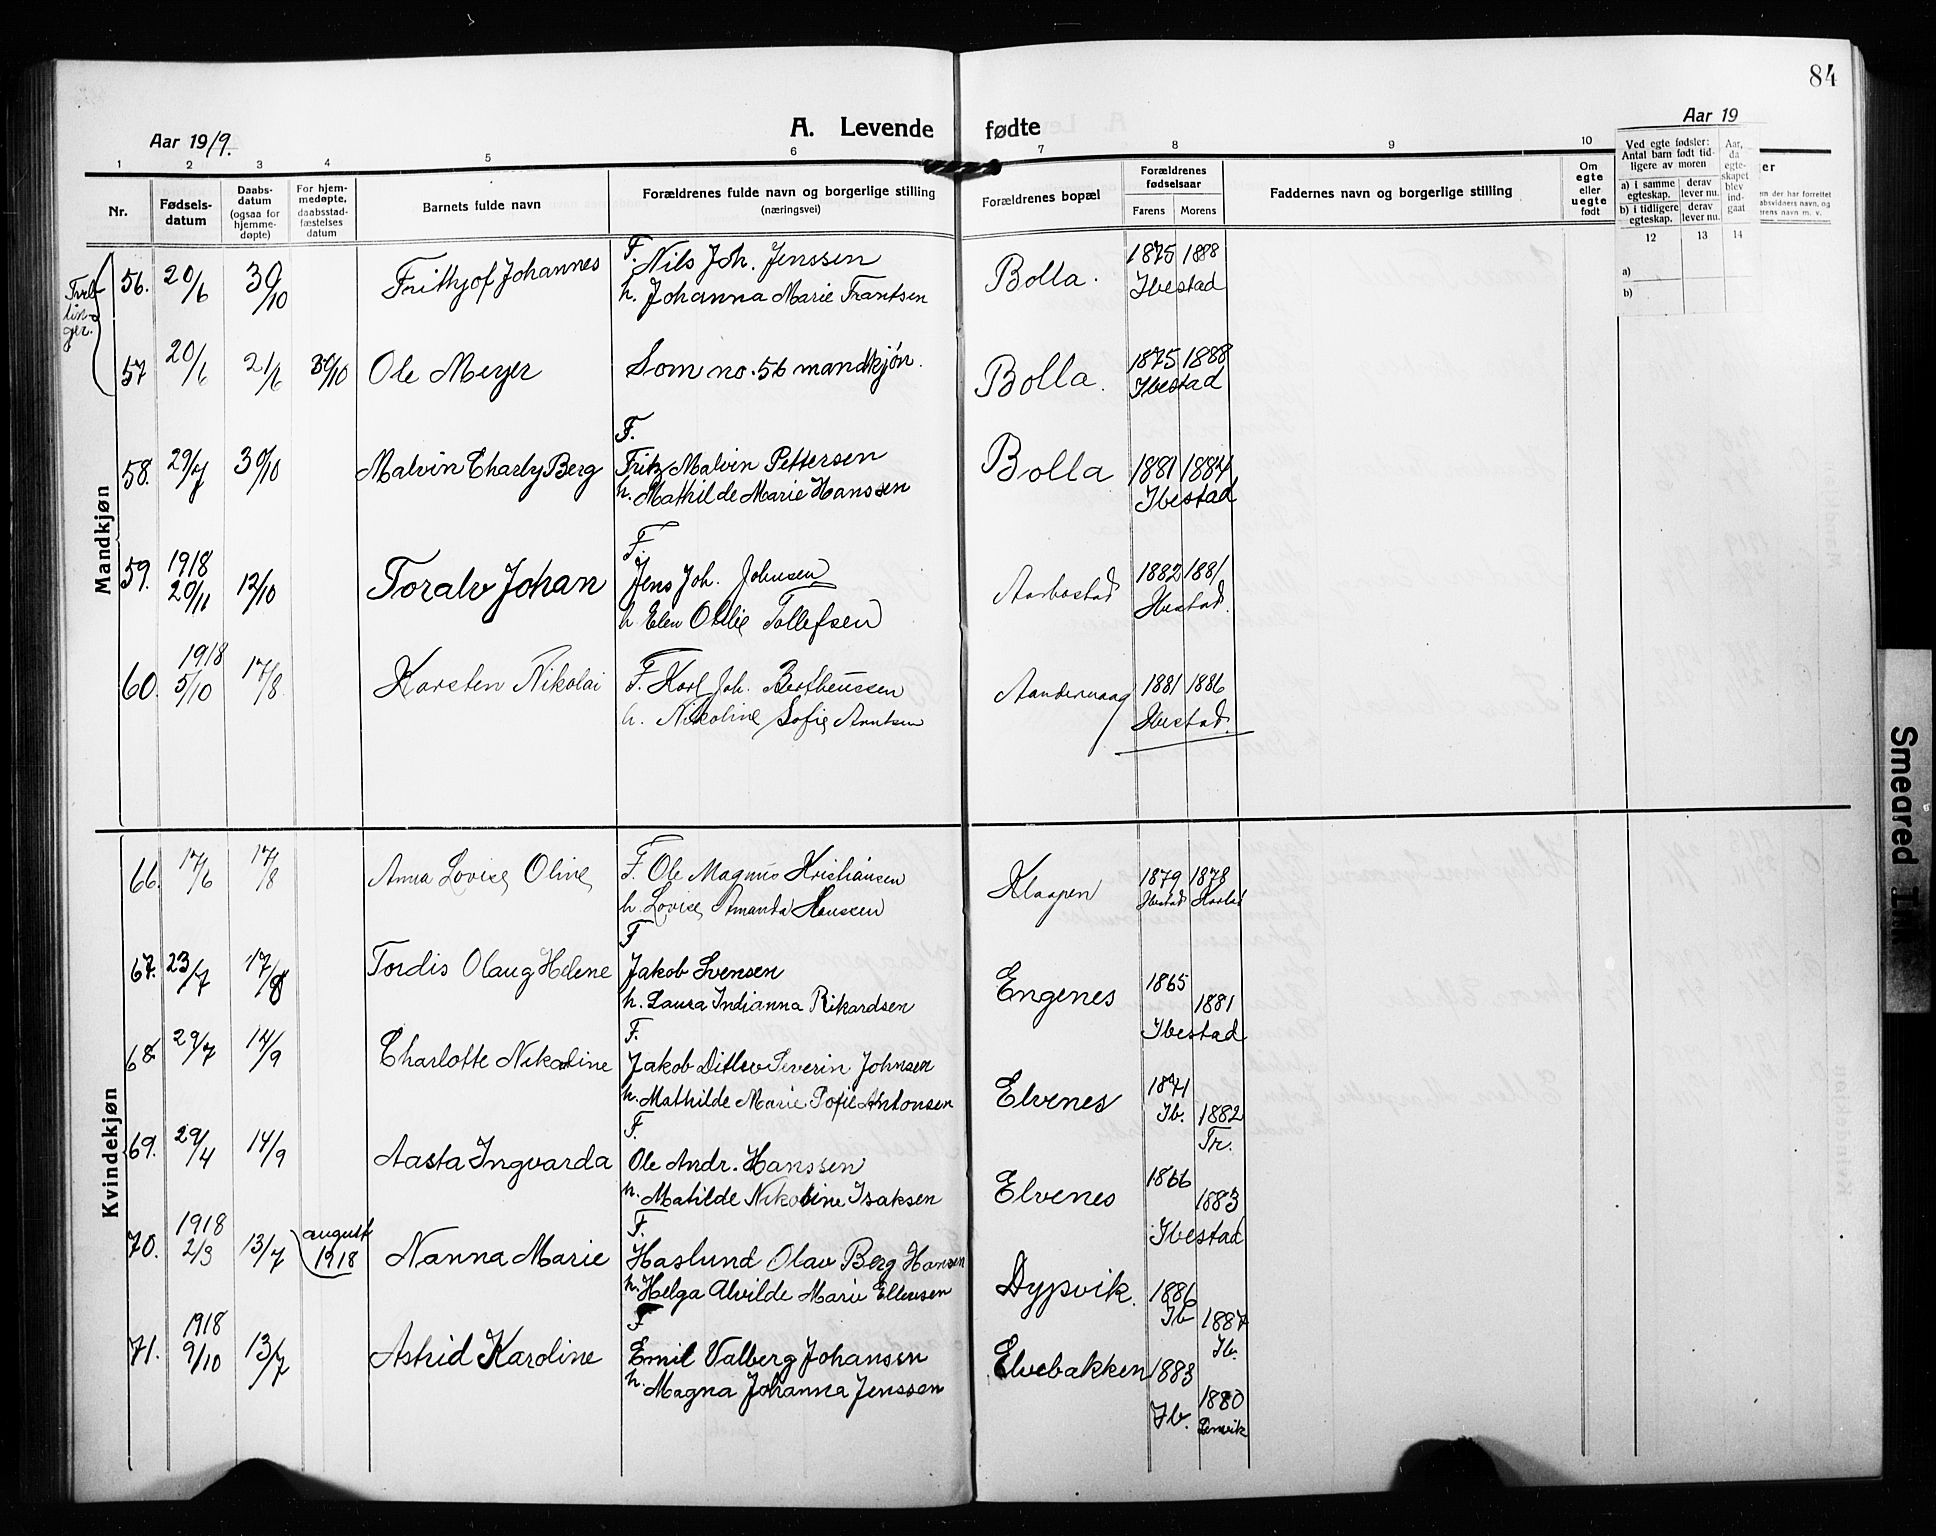 84
Aar 1919.
A. Levende fødte
Aar 19
1 2 3 4 5 6 7 8 9 10
Nr.
Fødsels-
datum
Daabs-
datum
(ogsaa for
hjemme-
døpte)
For hjem-
medøpte,
daabsstad-
fæstelses
datum
Barnets fulde navn
Forældrenes fulde navn og borgerlige stilling
(næringsvei)
Forældrenes bopæl
Forældrenes
fødselsaar
Farens Morens
Faddernes navn og borgerlige stilling
Om
egte
eller
uegte
født
Ved egte fødsler:
Antal barn født tid-
ligere av moren
a) i samme egteskap.
derav lever nu.
b) i tidligere egteskap.
derav lever nu.
Aar,
da
egte-
skapet
blev
ind-
gaat
12 13 14
a)
b)
Mandkjøn
Tvil-
lin-
ger.
56. 20/6 30/10 Frithjof Johannes
F. Nils Joh. Jenssen
h. Johanna Marie Frantsen
Bolla. 1875 1888
Ibestad
57 20/6 21/6 30/10 Ole Meyer Som no. 56 mandkjøn.
Bolla. 1875 1888
Ibestad
58. 29/7 30/10 Malvin Charly Berg
F.
Fritz Malvin Pettersen
h. Mathilde Marie Hanssen
Bolla 1881 1884
Ibestad
59. 1918
20/11 12/10 Toralv Johan
F.
Jens Joh. Johnsen
h Elen Otilie Tollefsen
Aarbostad 1882 1881
Ibestad.
60. 1918
5/10 17/8 Karsten Nikolai
F. Karl Joh. Bertheussen
h. Nikoline Sofie Arntsen
Aandervaag 1881 1886
Ibestad.
Kvindekjøn
66. 17/6 17/8 Anna Lovise Oline
F. Ole Magnus Kristiansen
h. Lovise Amanda Hanssen
Klaapen 1879 1878
Ibestad
67. 23/7 17/8 Tordis Olaug Helene
F
Jakob Svensen
h. Laura Indianna Rikardsen
Engenes 1865
1881
Ibestad
68 29/7 14/9 Charlotte Nikoline
F.
Jakob Ditlev Severin Johnsen
h. Mathilde Marie Sofie Antonsen
Elvenes 1871
Ib. 1882
Tr.
69. 29/4 14/9 Aasta Ingvarda
F.
Ole Andr. Hanssen
h. Matilde Nikoline Isaksen
Elvenes 1866
1883
Ibestad
70. 1918
2/3 13/7 august
1918 Nanna Marie
F.
Haslund Olav Berg Hansen
h. Helga Alvilde Marie Ellensen
Dypvik. 1886
Ib 1887
Ib.
71. 1918
9/10 13/7 Astrid Karoline
F
Emil Valberg Johansen
h. Magna Johanna Jenssen
Elvebakken 1883
Ib. 1880
Lenvik
Smeared Ink